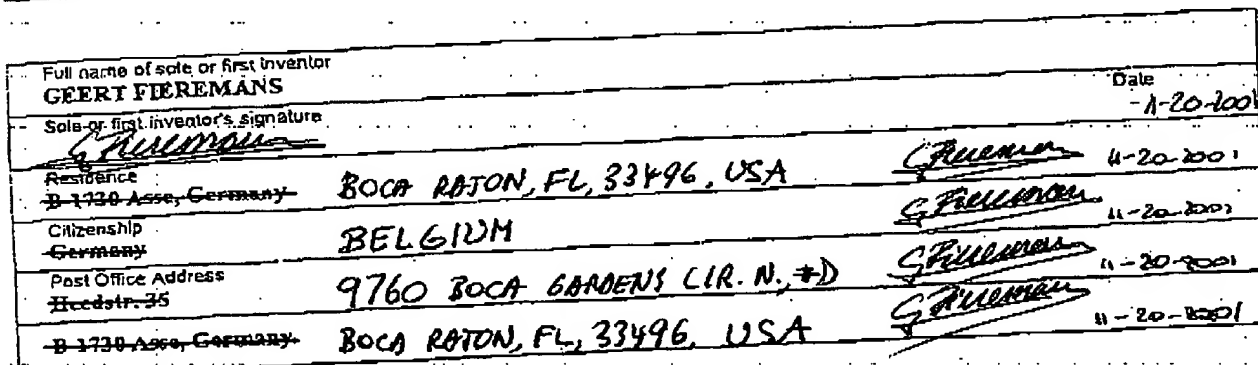 Full name of sole or first inventor
GEERT FIEREMANS
Date
11-20-2001
Sole or first inventor's signature
G Fieremans
Residence
B-1730 Asse, Germany BOCA RATON, FL, 33496, USA G Fieremans 11-20-2001
Citizenship
Germany BELGIUM G Fieremans 11-20-2001
Post Office Address
Heedstr. 35 9760 BOCA GARDENS CIR. N., #D G Fieremans 11-20-2001
B-1730 Asse, Germany BOCA RATON, FL, 33496, USA G Fieremans 11-20-2001